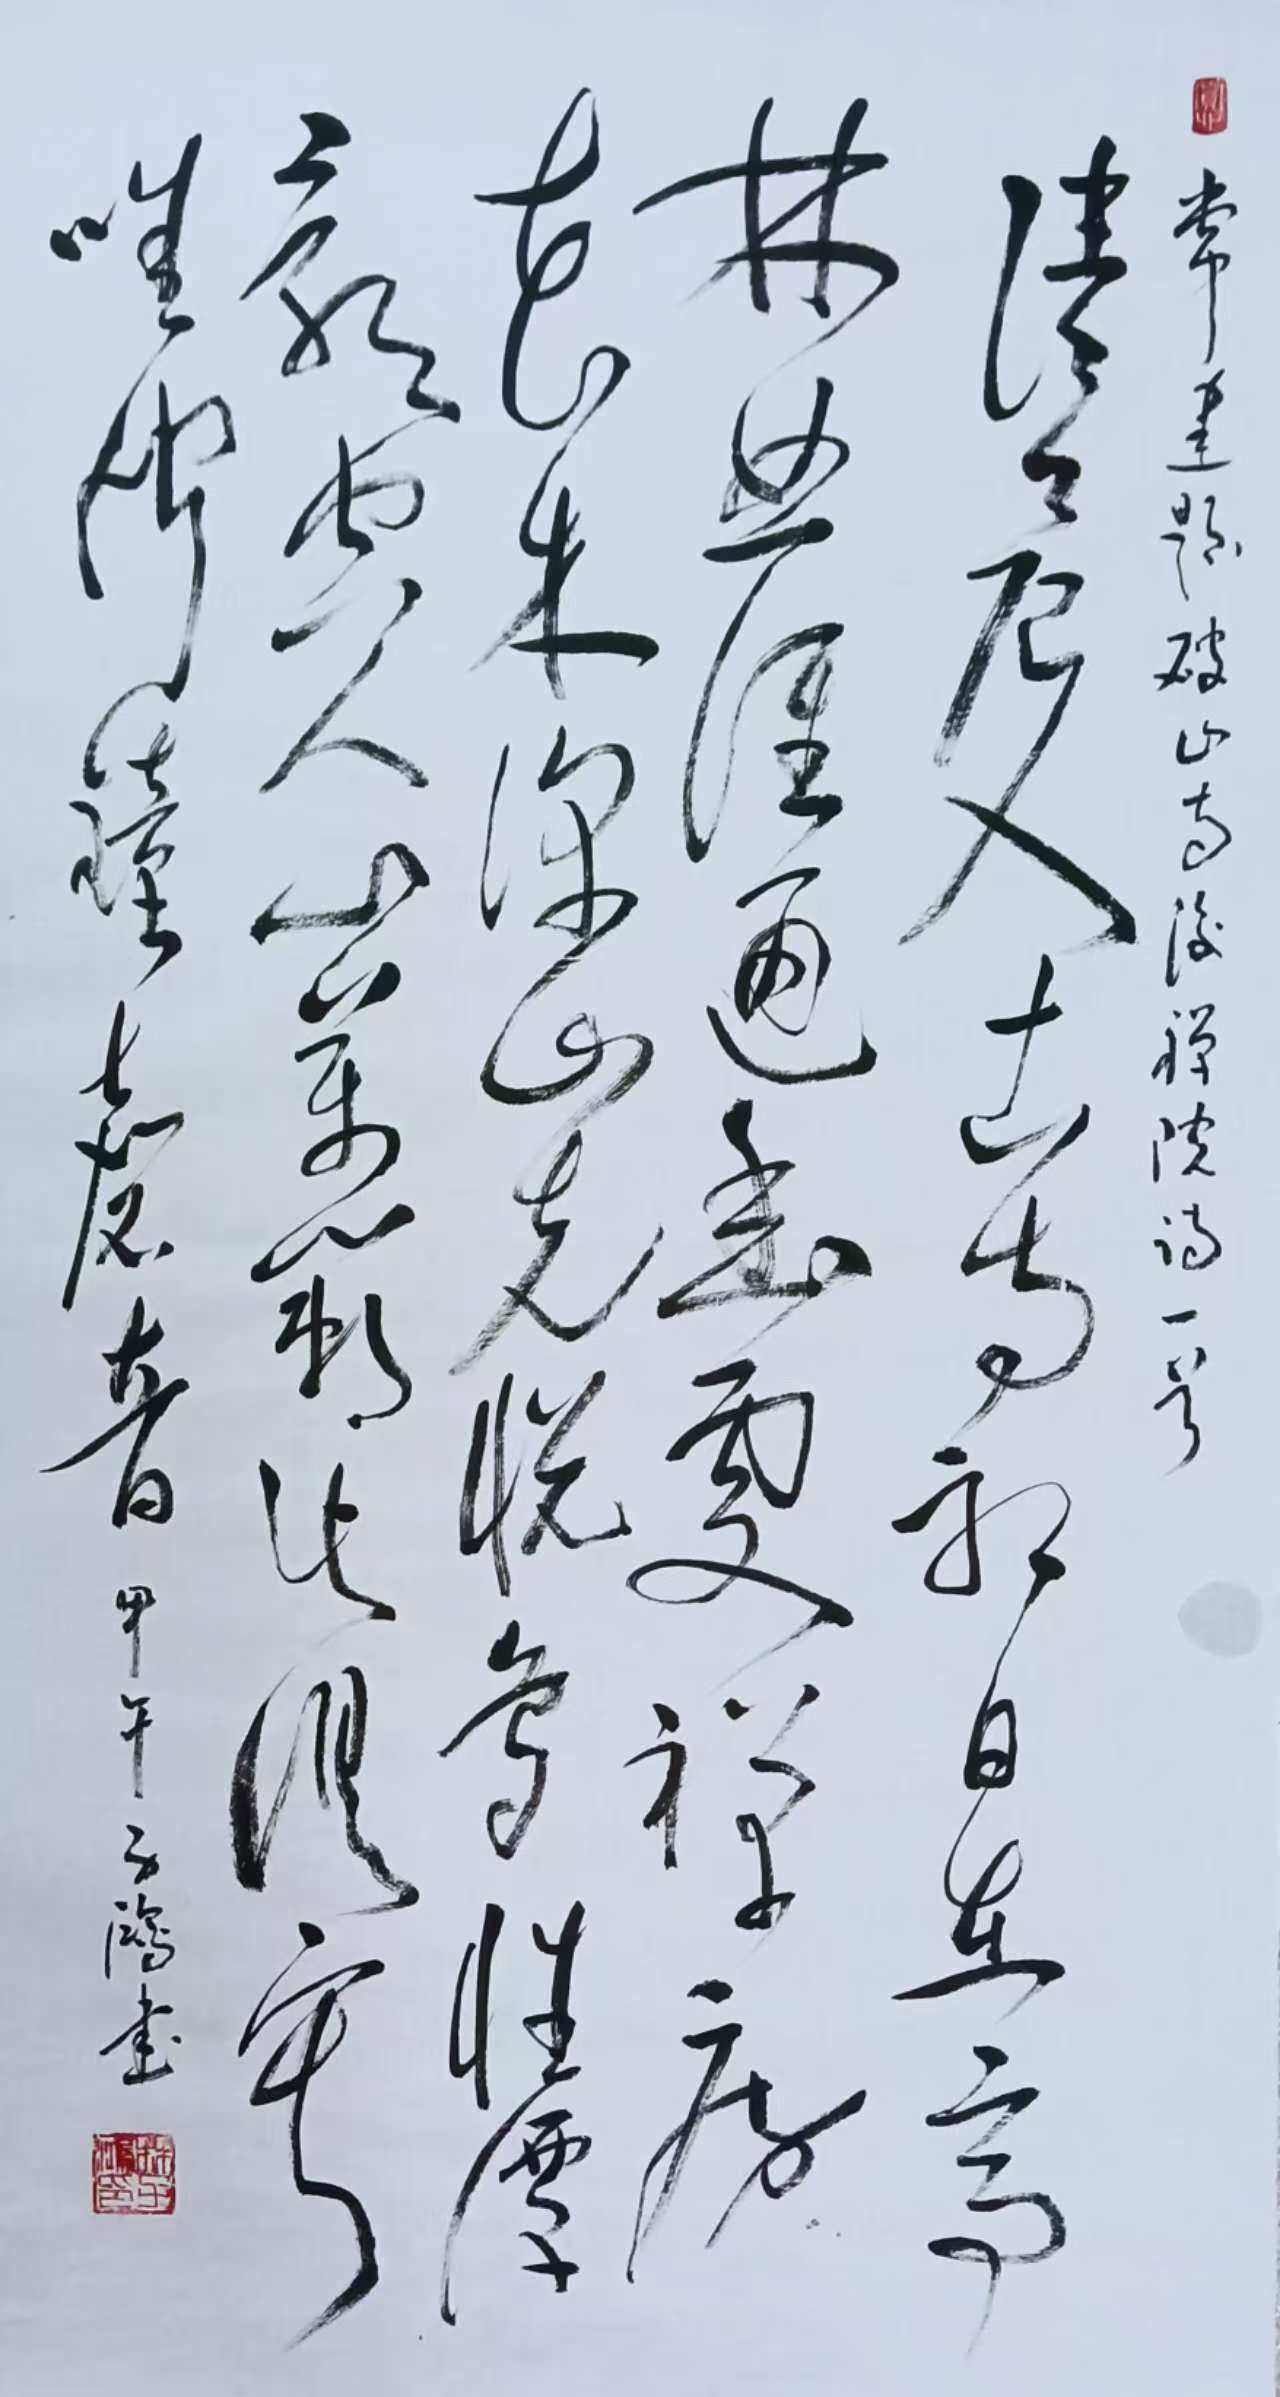 常建題破山寺後禪院詩一首
清晨入古寺初日在高
林曲徑通幽處禪房
花木深山光悅鳥性潭
影空人心萬籟此俱寂
唯聞鐘磬音 甲午子鴻書